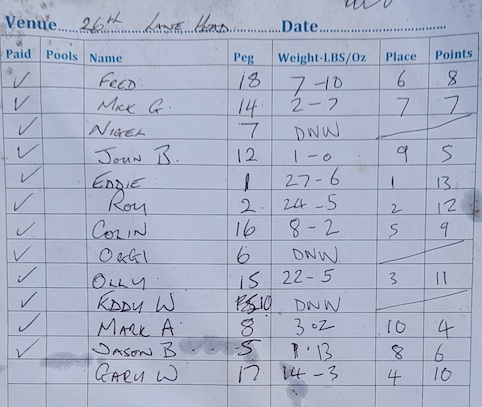 Venue 26th Lane Head Date
Paid Pools Name Peg Weight-LBS/Oz Place Points
✓ FRED 18 7-10 6 8
✓ MICK G. 14 2-7 7 7
✓ NIGEL 7 DNW
✓ JOHN B. 12 1-0 9 5
✓ EDDIE 1 27-6 1 13
✓ ROY 2 24-5 2 12
✓ COLIN 16 8-2 5 9
✓ OGGI 6 DNW
✓ OLLY 15 22-5 3 11
✓ EDDY W 10 DNW
✓ MARK A 8 3 oz 10 4
✓ JASON B 5 1.13 8 6
GARY W 17 14-3 4 10